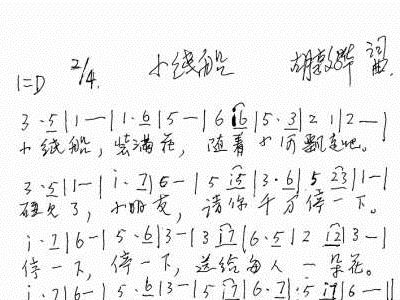 小纸船 胡敦骅 词曲
1=D 2/4
3·5|1—|1·6|5—|6 i6|5·3|2 1|2—|
小纸船，装满花，随着小河飘走吧。
3·5|1—|i·7|6—|5 i5|3·6|5 23|1—|
碰见了，小朋友，请你千万停一下。
i·7|6—|5·6|3—|3 i7|6·5|2 i2|3—|
停一下，停一下，送给每人一朵花。
i·7|6—|5·6|3—|5 i7|6·7|5 i7|6—|